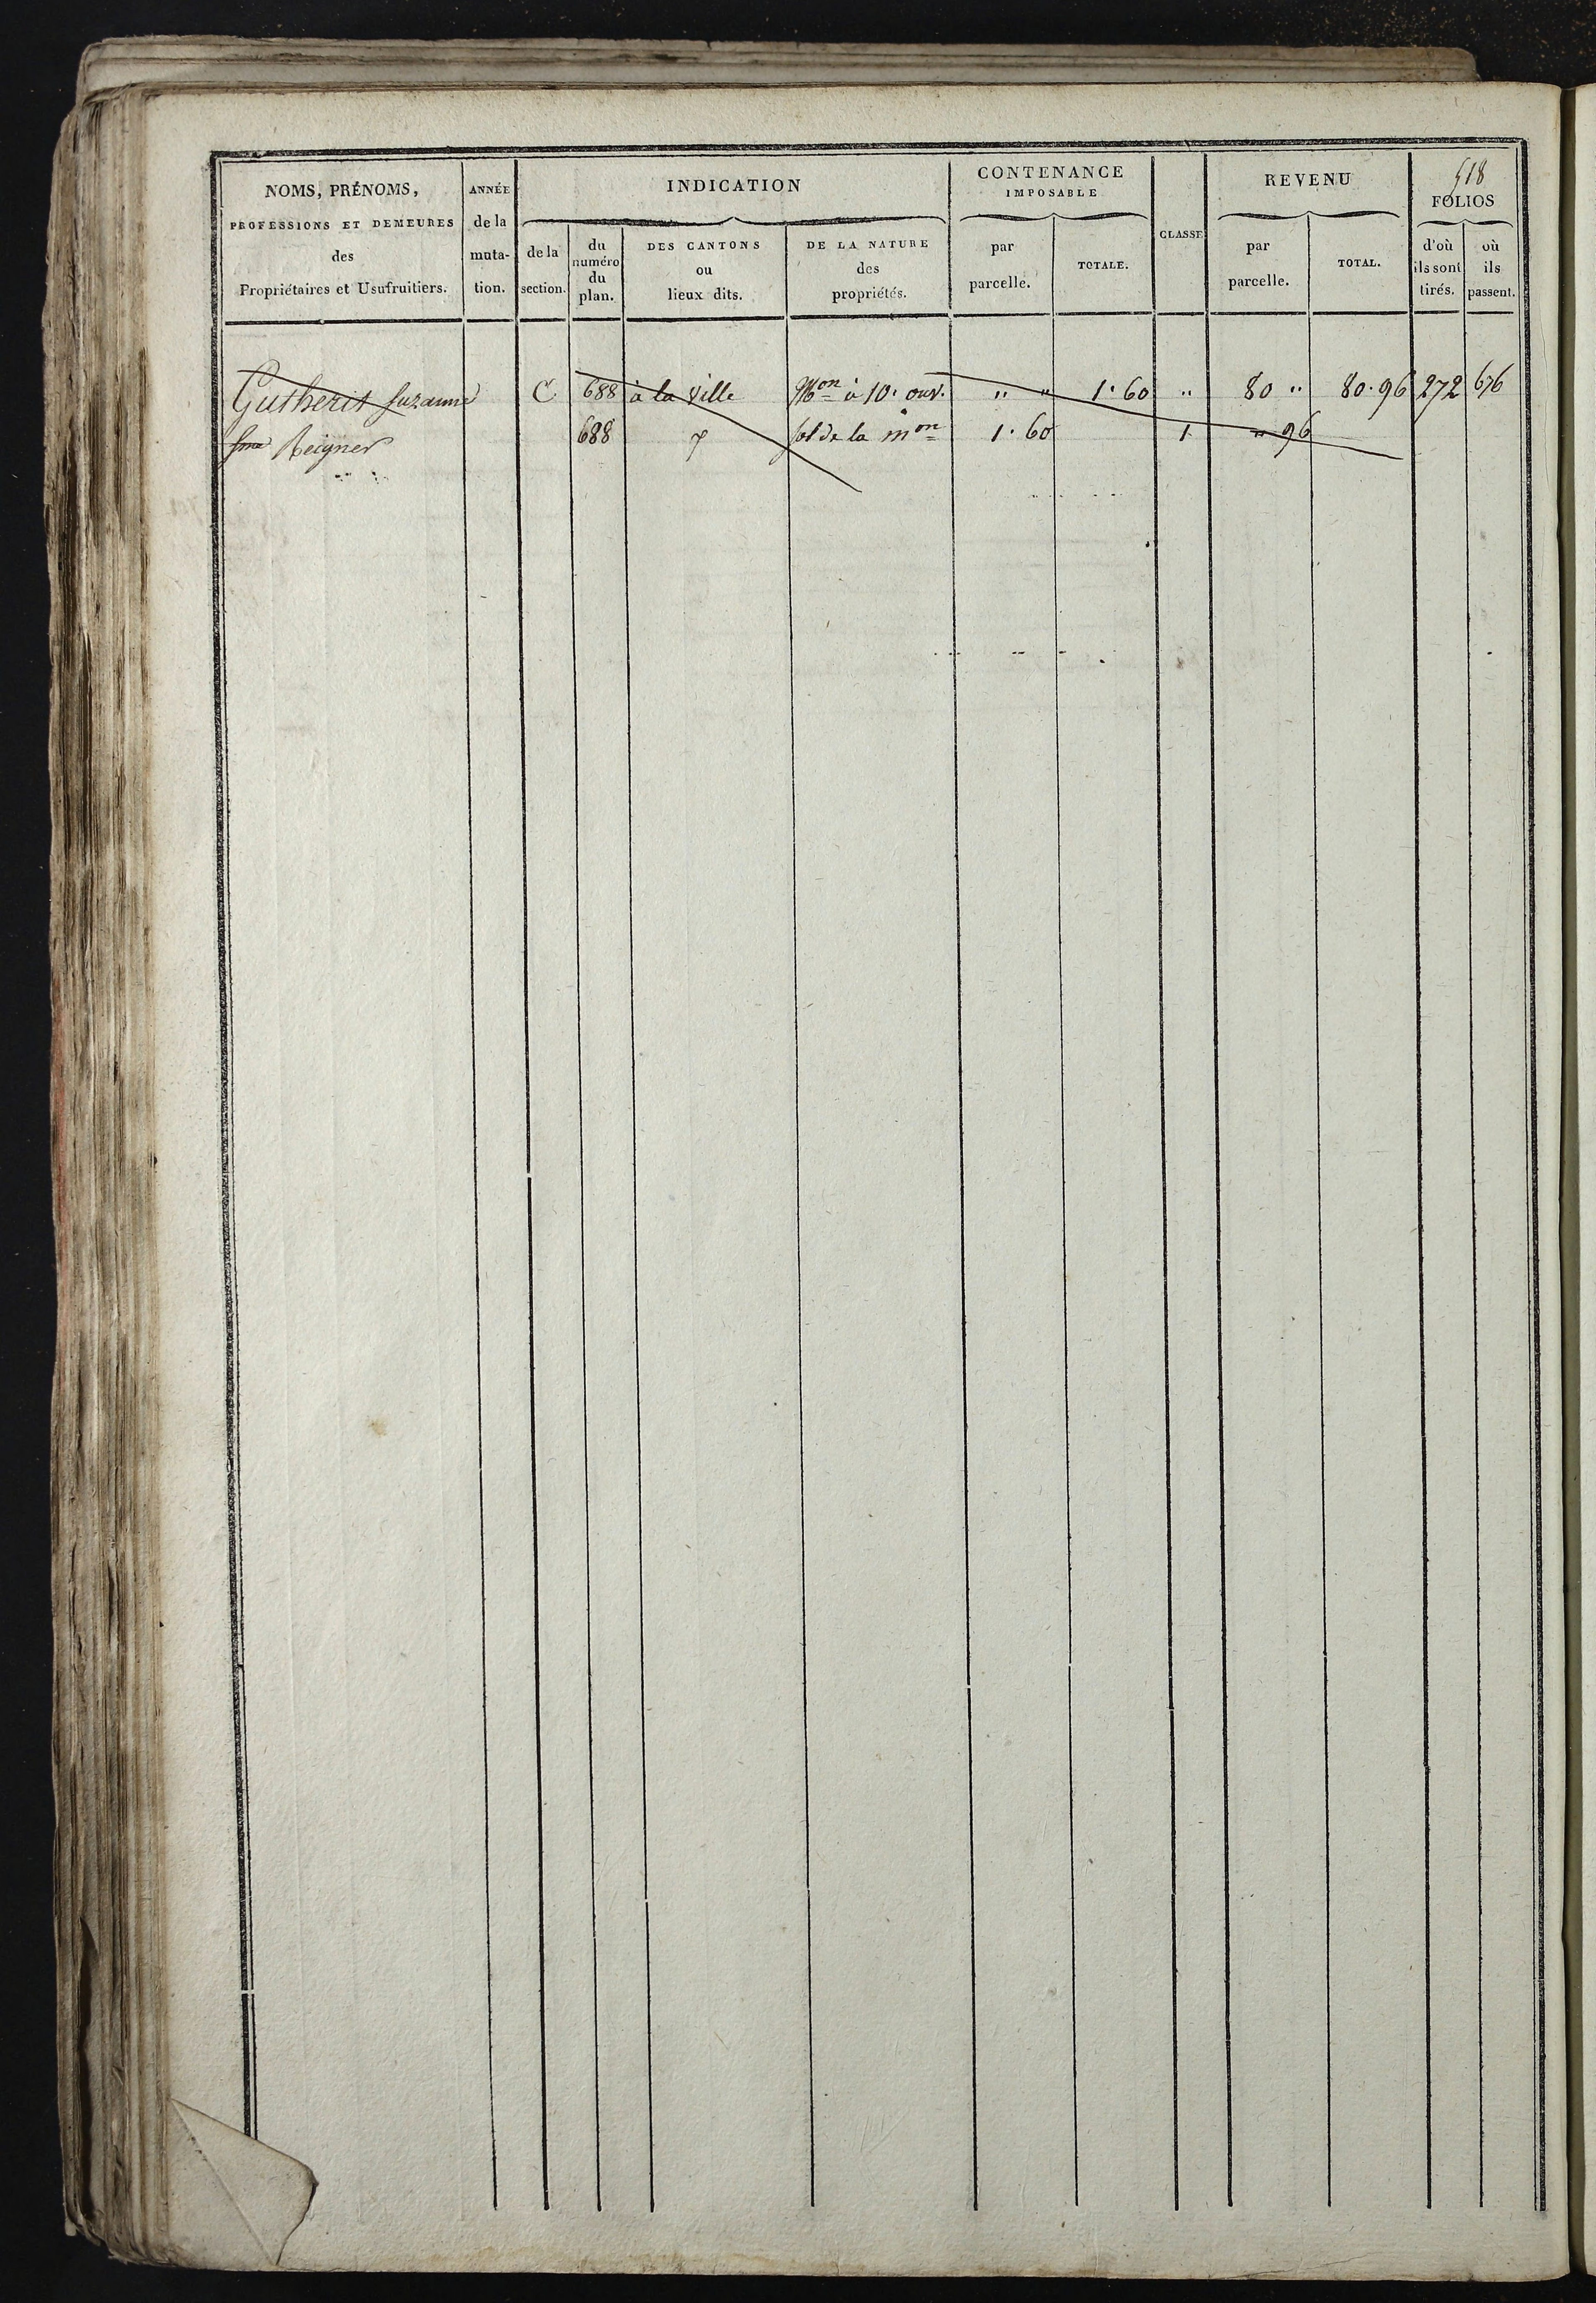 518
NOMS, PRÉNOMS,
PROFESSIONS ET DEMEURES
des
Propriétaires et Usufruitiers.
ANNÉE
de la
muta-
tion.
INDICATION
de la
section.
du
numéro
du
plan.
DES CANTONS
ou
lieux dits.
DE LA NATURE
des
propriétés.
CONTENANCE
IMPOSABLE
par
parcelle.
TOTALE.
CLASSE
REVENU
par
parcelle.
TOTAL.
FOLIOS
d'où
ils sont
tirés.
où
ils
passent.
Gutherit Suzanne C 688 à la Ville Mon à 10. ouv. " " 1.60 " 80 " 80.96 272 676
fme Reigner 688 sol de la mon 1.60 1 " 96